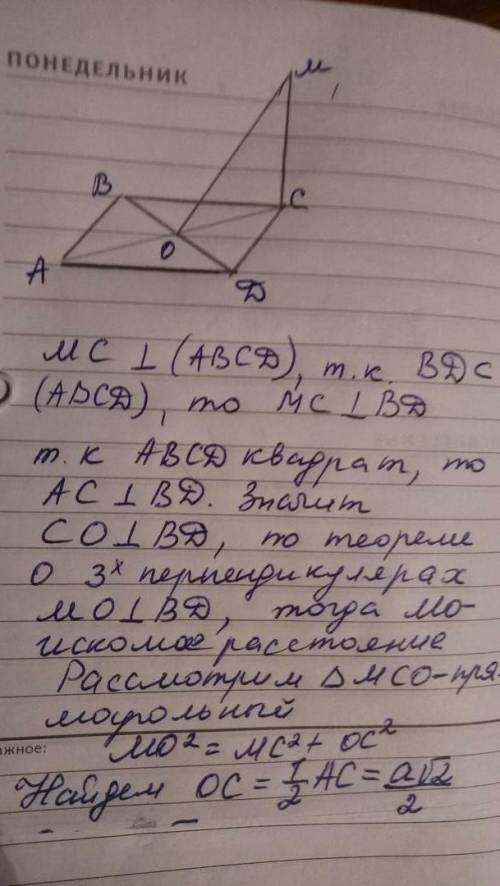 ПОНЕДЕЛЬНИК
М
В
С
О
А
D
MC ⊥ (ABCD), т.к. BD ⊂
(ABCD), то MC ⊥ BD
т.к ABCD квадрат, то
AC ⊥ BD. Значит
CO ⊥ BD, то теореме
О 3х перпендикулярах
MO ⊥ BD, тогда МО-
искомое расстояние
Рассмотрим △ MCO-пря-
моугольный
ажное:
MO² = MC² + OC²
Найдем OC = 1/2 AC = a√2/2